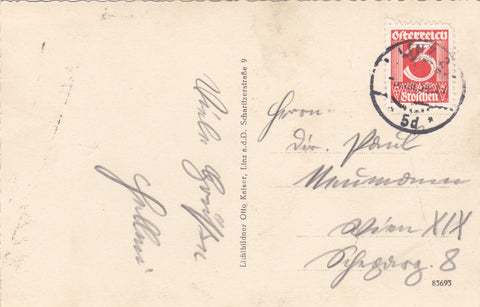 Viele Grüße
Lichtbildner Otto Kaiser, Linz a.d.D. Scharitzerstraße 9
Österreich
3
Groschen
5d
Herrn
Dir. Paul
Neumann
Wien XIX
8
83693